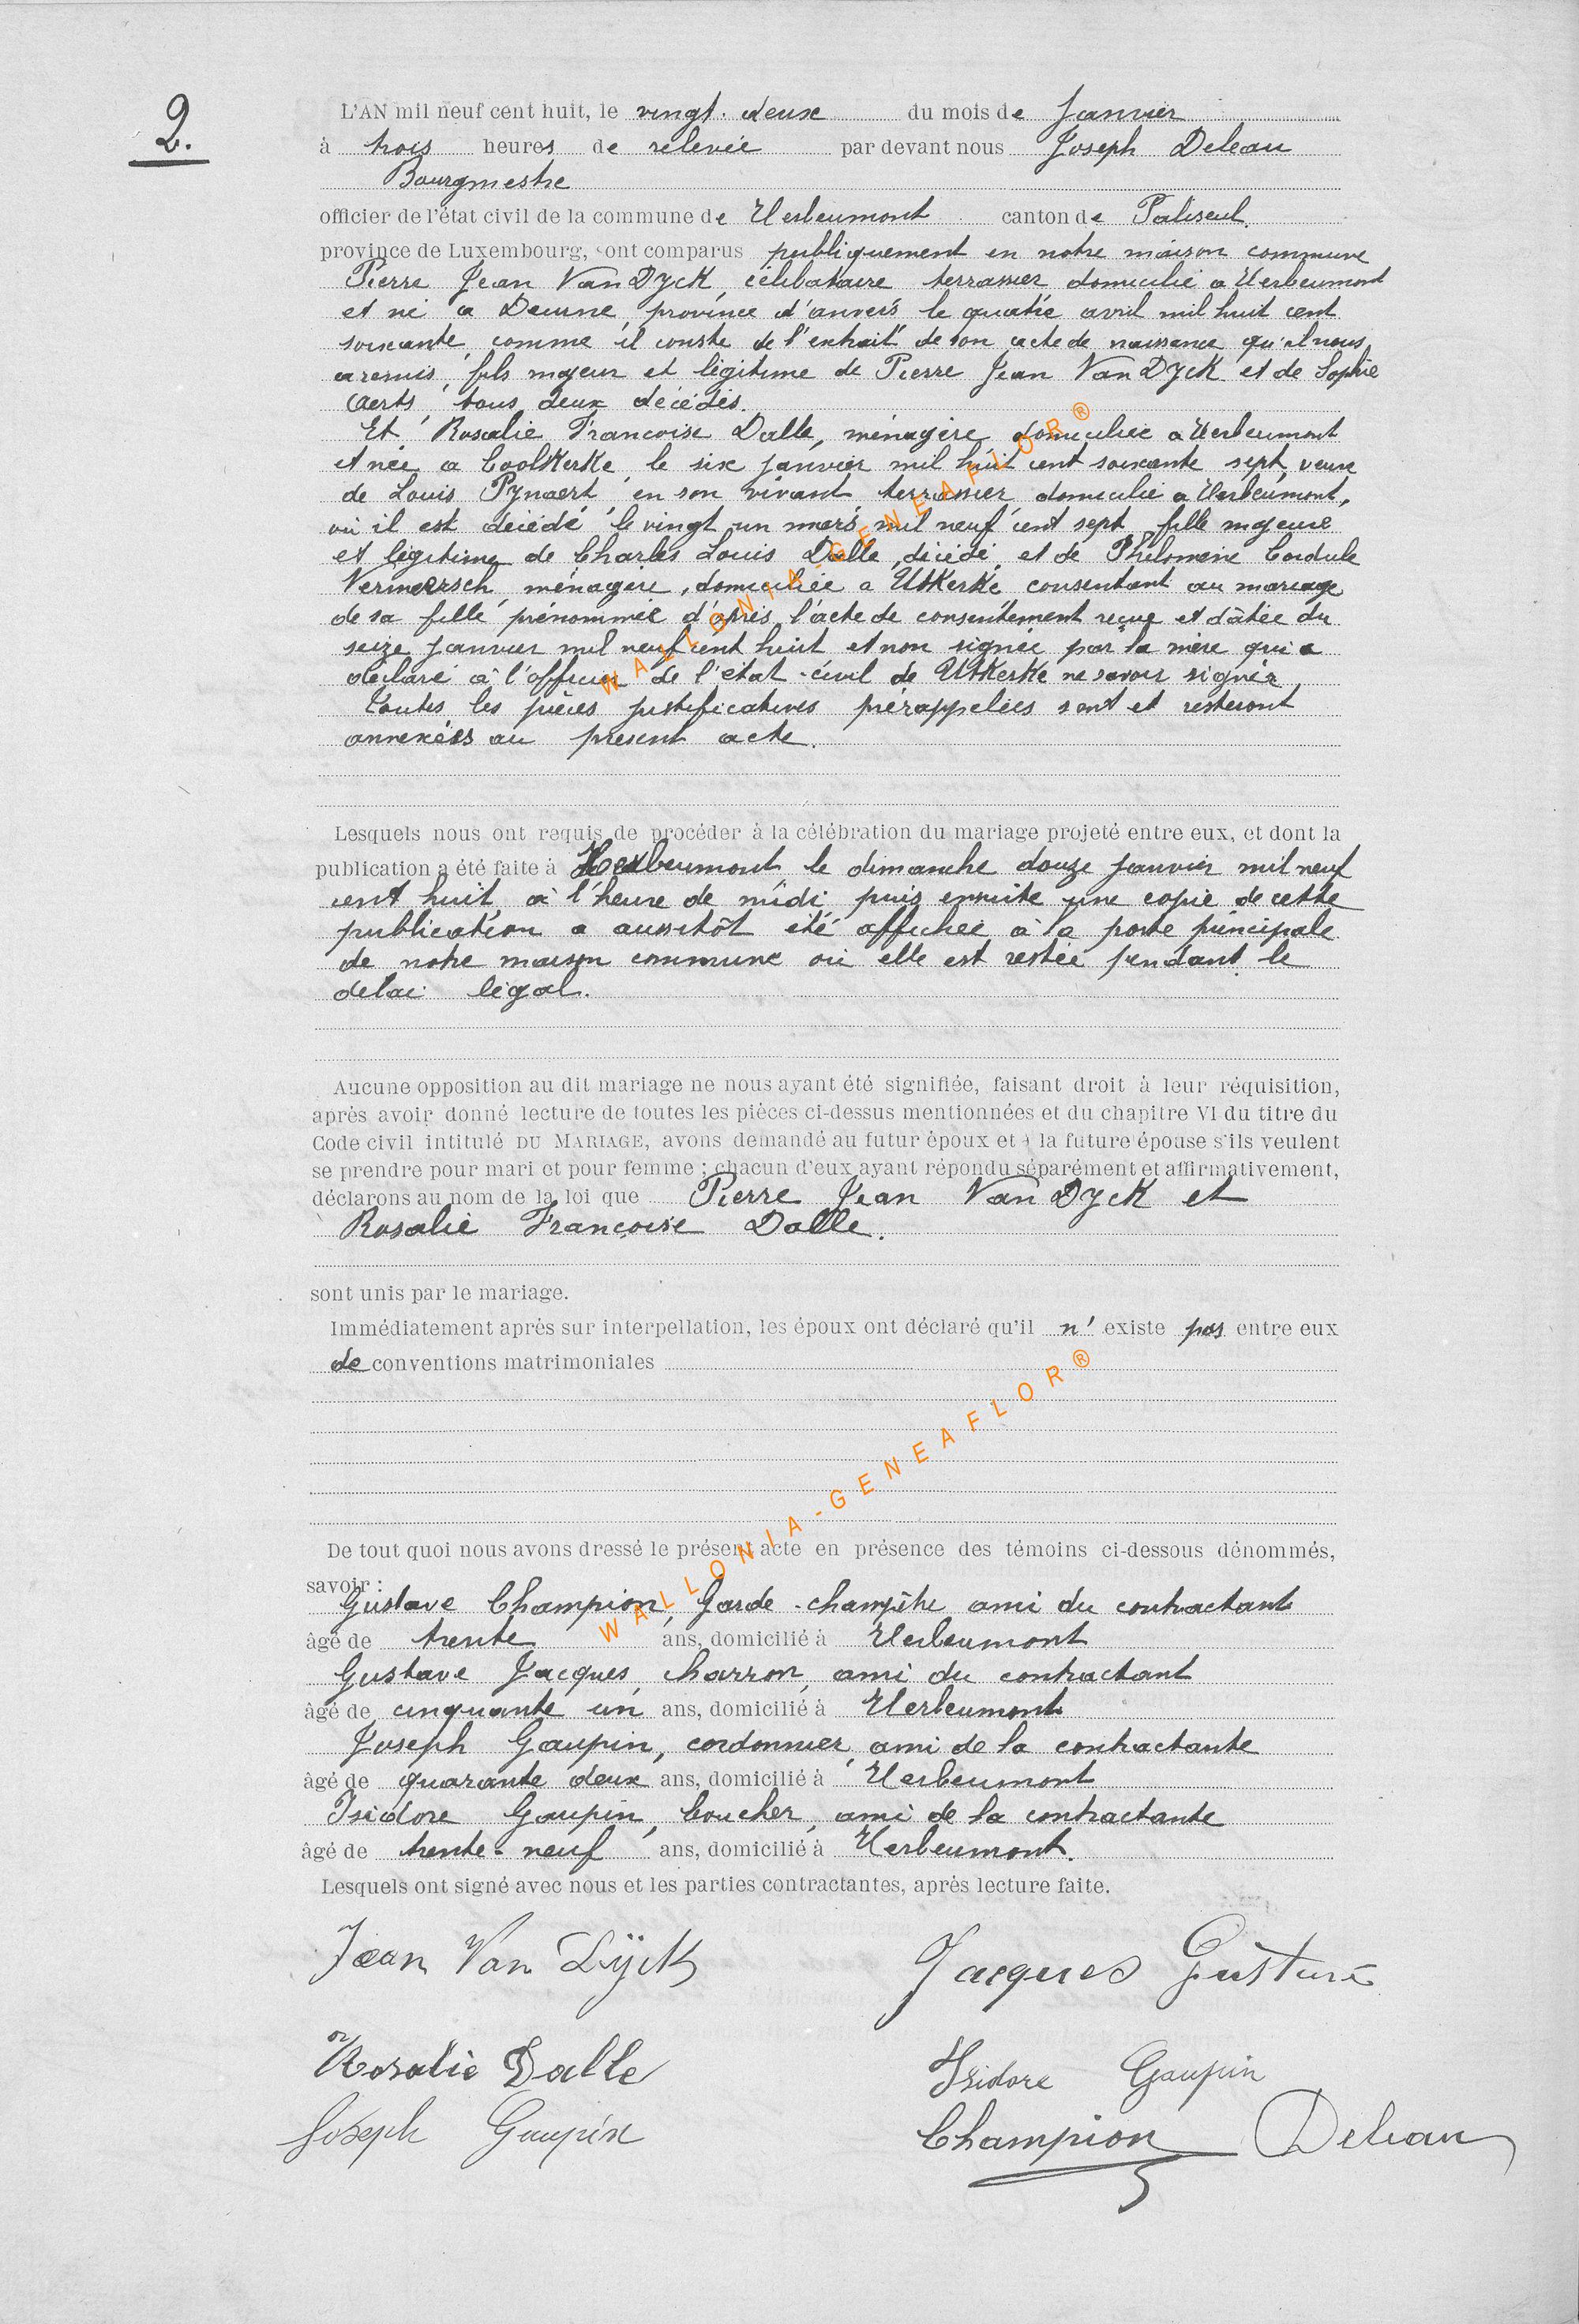 2.
L'AN mil neuf cent huit, le vingt-deux du mois de Janvier
à trois heures de relevée par devant nous Joseph Deleau
Bourgmestre
officier de l'état civil de la commune de Herbeumont canton de Paliseul.
province de Luxembourg, sont comparus publiquement en notre maison commune
Pierre Jean Van Dyck, célibataire terrassier domicilié à Herbeumont
et né à Deurne, province d'anvers le quatre avril mil huit cent
soixante, comme il conste de l'extrait de son acte de naissance qu'il nous
a remis, fils majeur et légitime de Pierre Jean Van Dyck et de Sophie
Aerts, tous deux décédés.
Et Rosalie Francoise Dalle, ménagère domiciliée à Herbeumont
et née à Coolkerke le six janvier mil huit cent soixante sept, veuve
de Louis Pynaert en son vivant terrassier domicilié à Herbeumont,
où il est décédé le vingt un mars mil neuf cent sept, fille majeure
et légitime de Charles Louis Dalle, décédé, et de Philomène Cordule
Vermeersch, ménagère, domiciliée à Utkerke consentant au mariage
de sa fille prénommée d'après l'acte de consentement reçue et datée du
seize janvier mil neuf cent huit et non signée par la mère qui a
déclaré à l'officier de l'état-civil de Utkerke ne savoir signer.
Toutes les pièces justificatives prérappelées sont et resteront
annexées au présent acte.
Lesquels nous ont requis de procéder à la célébration du mariage projeté entre eux, et dont la
publication a été faite à Herbeumont le dimanche douze janvier mil neuf
cent huit à l'heure de midi puis ensuite une copie de cette
publication a aussitôt été affichée à la porte principale
de notre maison commune où elle est restée pendant le
délai légal.
Aucune opposition au dit mariage ne nous ayant été signifiée, faisant droit à leur réquisition,
après avoir donné lecture de toutes les pièces ci-dessus mentionnées et du chapitre VI du titre du
Code civil intitulé DU MARIAGE, avons demandé au futur époux et à la future épouse s'ils veulent
se prendre pour mari et pour femme ; chacun d'eux ayant répondu séparément et affirmativement,
déclarons au nom de la loi que Pierre Jean Van Dyck et
Rosalie Françoise Dalle.
sont unis par le mariage.
Immédiatement après sur interpellation, les époux ont déclaré qu'il n'existe pas entre eux
de conventions matrimoniales
De tout quoi nous avons dressé le présent acte en présence des témoins ci-dessous dénommés,
savoir :
Gustave Champion, Garde-champêtre ami du contractant
âgé de trente ans, domicilié à Herbeumont
Gustave Jacques, charron, ami du contractant
âgé de cinquante un ans, domicilié à Herbeumont
Joseph Gaupin, cordonnier, ami de la contractante
âgé de quarante deux ans, domicilié à Herbeumont
Isidore Gaupin, boucher, ami de la contractante
âgé de trente-neuf ans, domicilié à Herbeumont.
Lesquels ont signé avec nous et les parties contractantes, après lecture faite.
Jean Van Dÿck Jacques Gustave
Rosalie Dalle Isidore Gaupin
Joseph Gaupin Champion Deleau
WALLONIA-GENEAFLOR®
WALLONIA-GENEAFLOR®